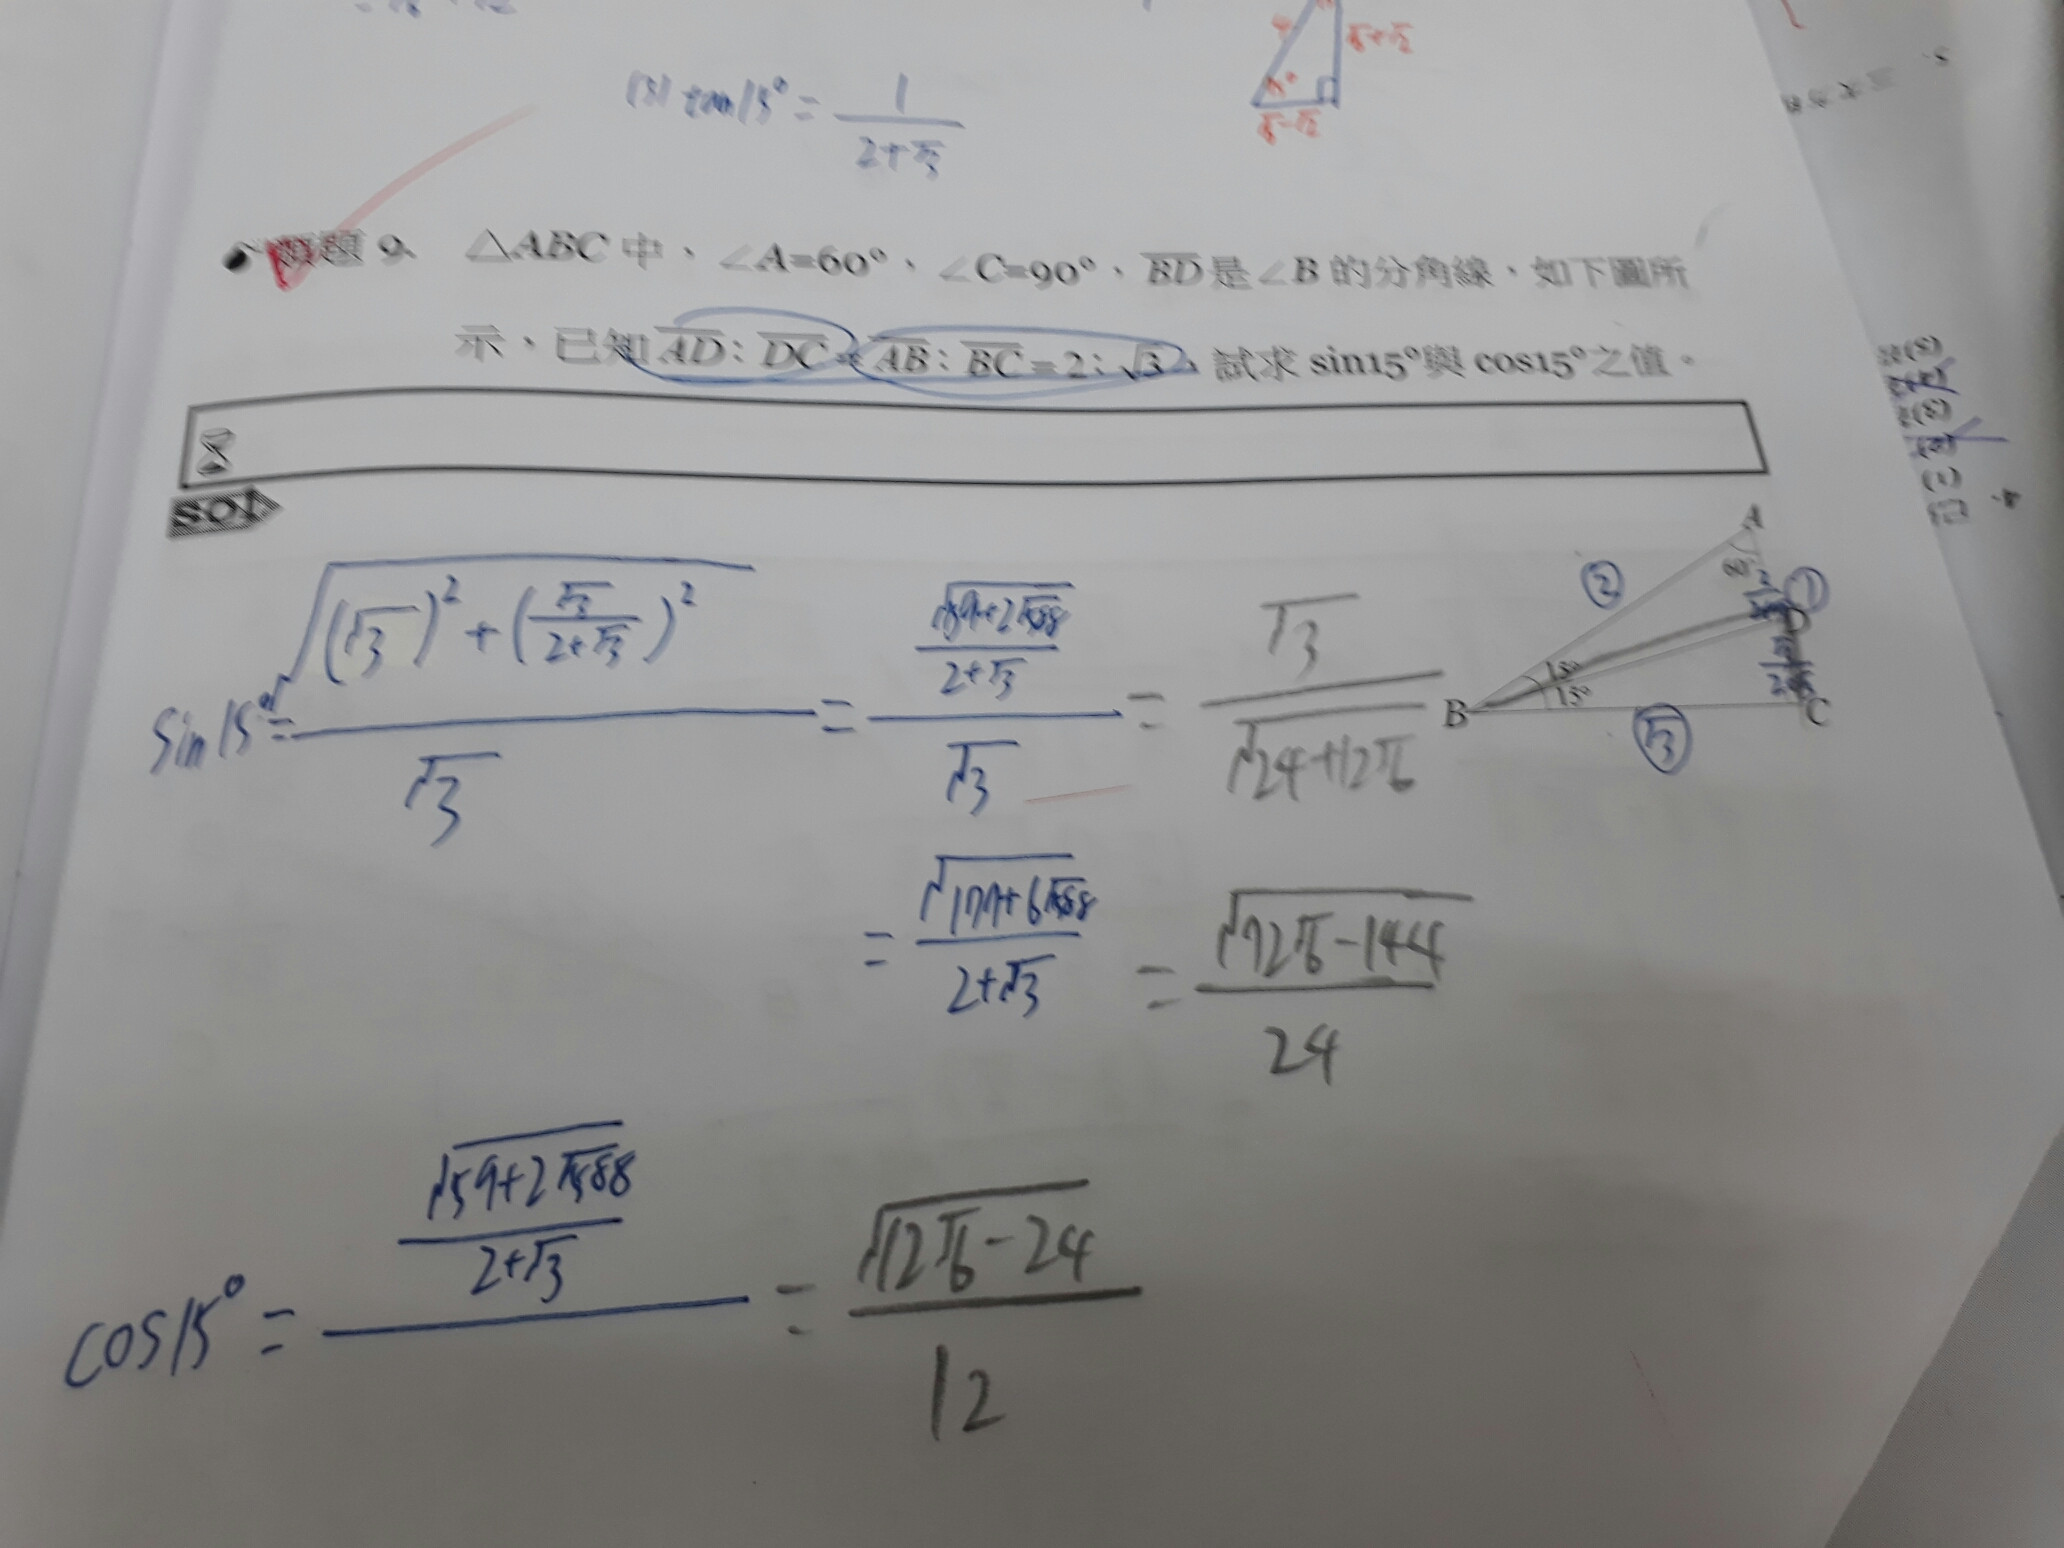 (3) tan15° = 1/(2+√3)
√6+√2
√6-√2
類題 9、 △ABC 中，∠A=60°、∠C=90°，BD 是∠B 的分角線，如下圖所
示，已知 AD：DC = AB：BC = 2：√3，試求 sin15°與 cos15°之值。
SOL
sin15° = √((√3)² + (√3/(2+√3))²) / √3 = (√(59+2√588)/(2+√3)) / √3 = √3/√(24+12√6)
= √(177+6√588)/(2+√3) = √(72√6-144)/24
cos15° = (√(59+2√588)/(2+√3)) / = √(12√6-24)/12
A
60°
② ①
D
15°
15°
B
C
√3